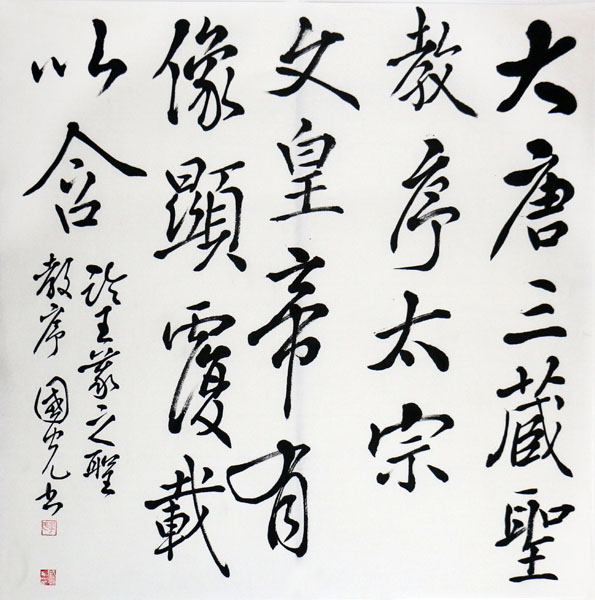 大唐三藏聖
教序太宗
文皇帝有
像顯覆載
以含
臨王羲之聖
教序 國光书